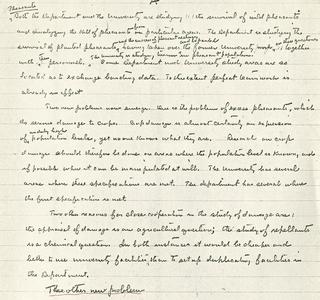 Both the Department and the University are studying (1) the survival of wild pheasants
and chronology the kill of pheasants on particular areas. The Department is studying the
survival of planted pheasants, having taken over the former University work, together
with personnel. Some Department and University study areas are so
located as to exchange banding data. To this extent perfect teamwork is
already in effect
Two new problems now emerge. One is the problem of excess pheasants, which
do serious damage to crops. Crop damage is almost certainly an expression
of population levels, yet no one knows what they are. Research on crop
damage should therefore be done on areas where the population level is known, and
if possible where it can be manipulated at will. The University has several
areas where these specifications are met. The department has several where
the first specification is met.
Two other reasons for close cooperation in the study of damage are:
the appraisal of damage is an agricultural question; the study of repellants
is a chemical question. In both instances it would be cheaper and
better to use university facilities than to set up duplicating facilities in
the Department.
The other new problem